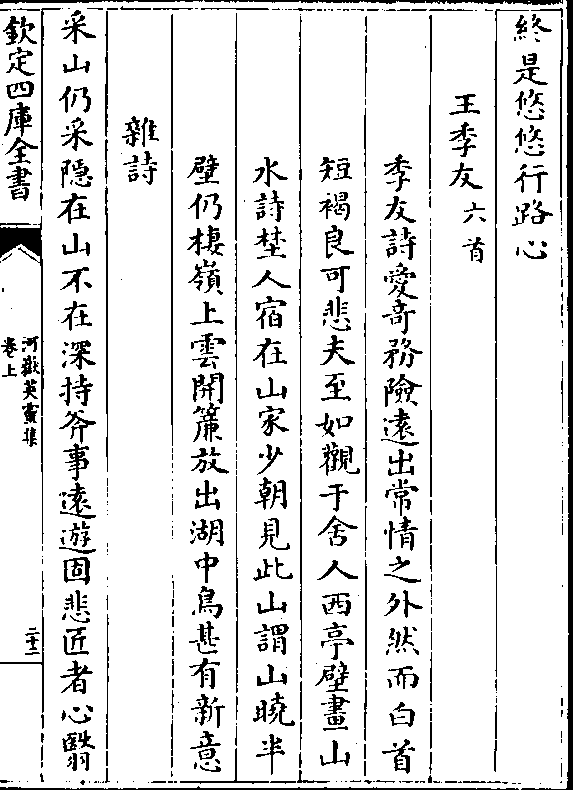 終是悠悠行路心
王季友六首
季友詩愛奇務險遠出常情之外然而白首
短褐良可悲夫至如觀于舍人西亭壁畫山
水詩埜人宿在山家少朝見此山謂山曉半
壁仍棲嶺上雲開簾放出湖中鳥甚有新意
雜詩
采山仍采隠在山不在深持斧事遠遊固悲匠者心翳
欽定四庫全書
河嶽英靈集
卷上
二十二